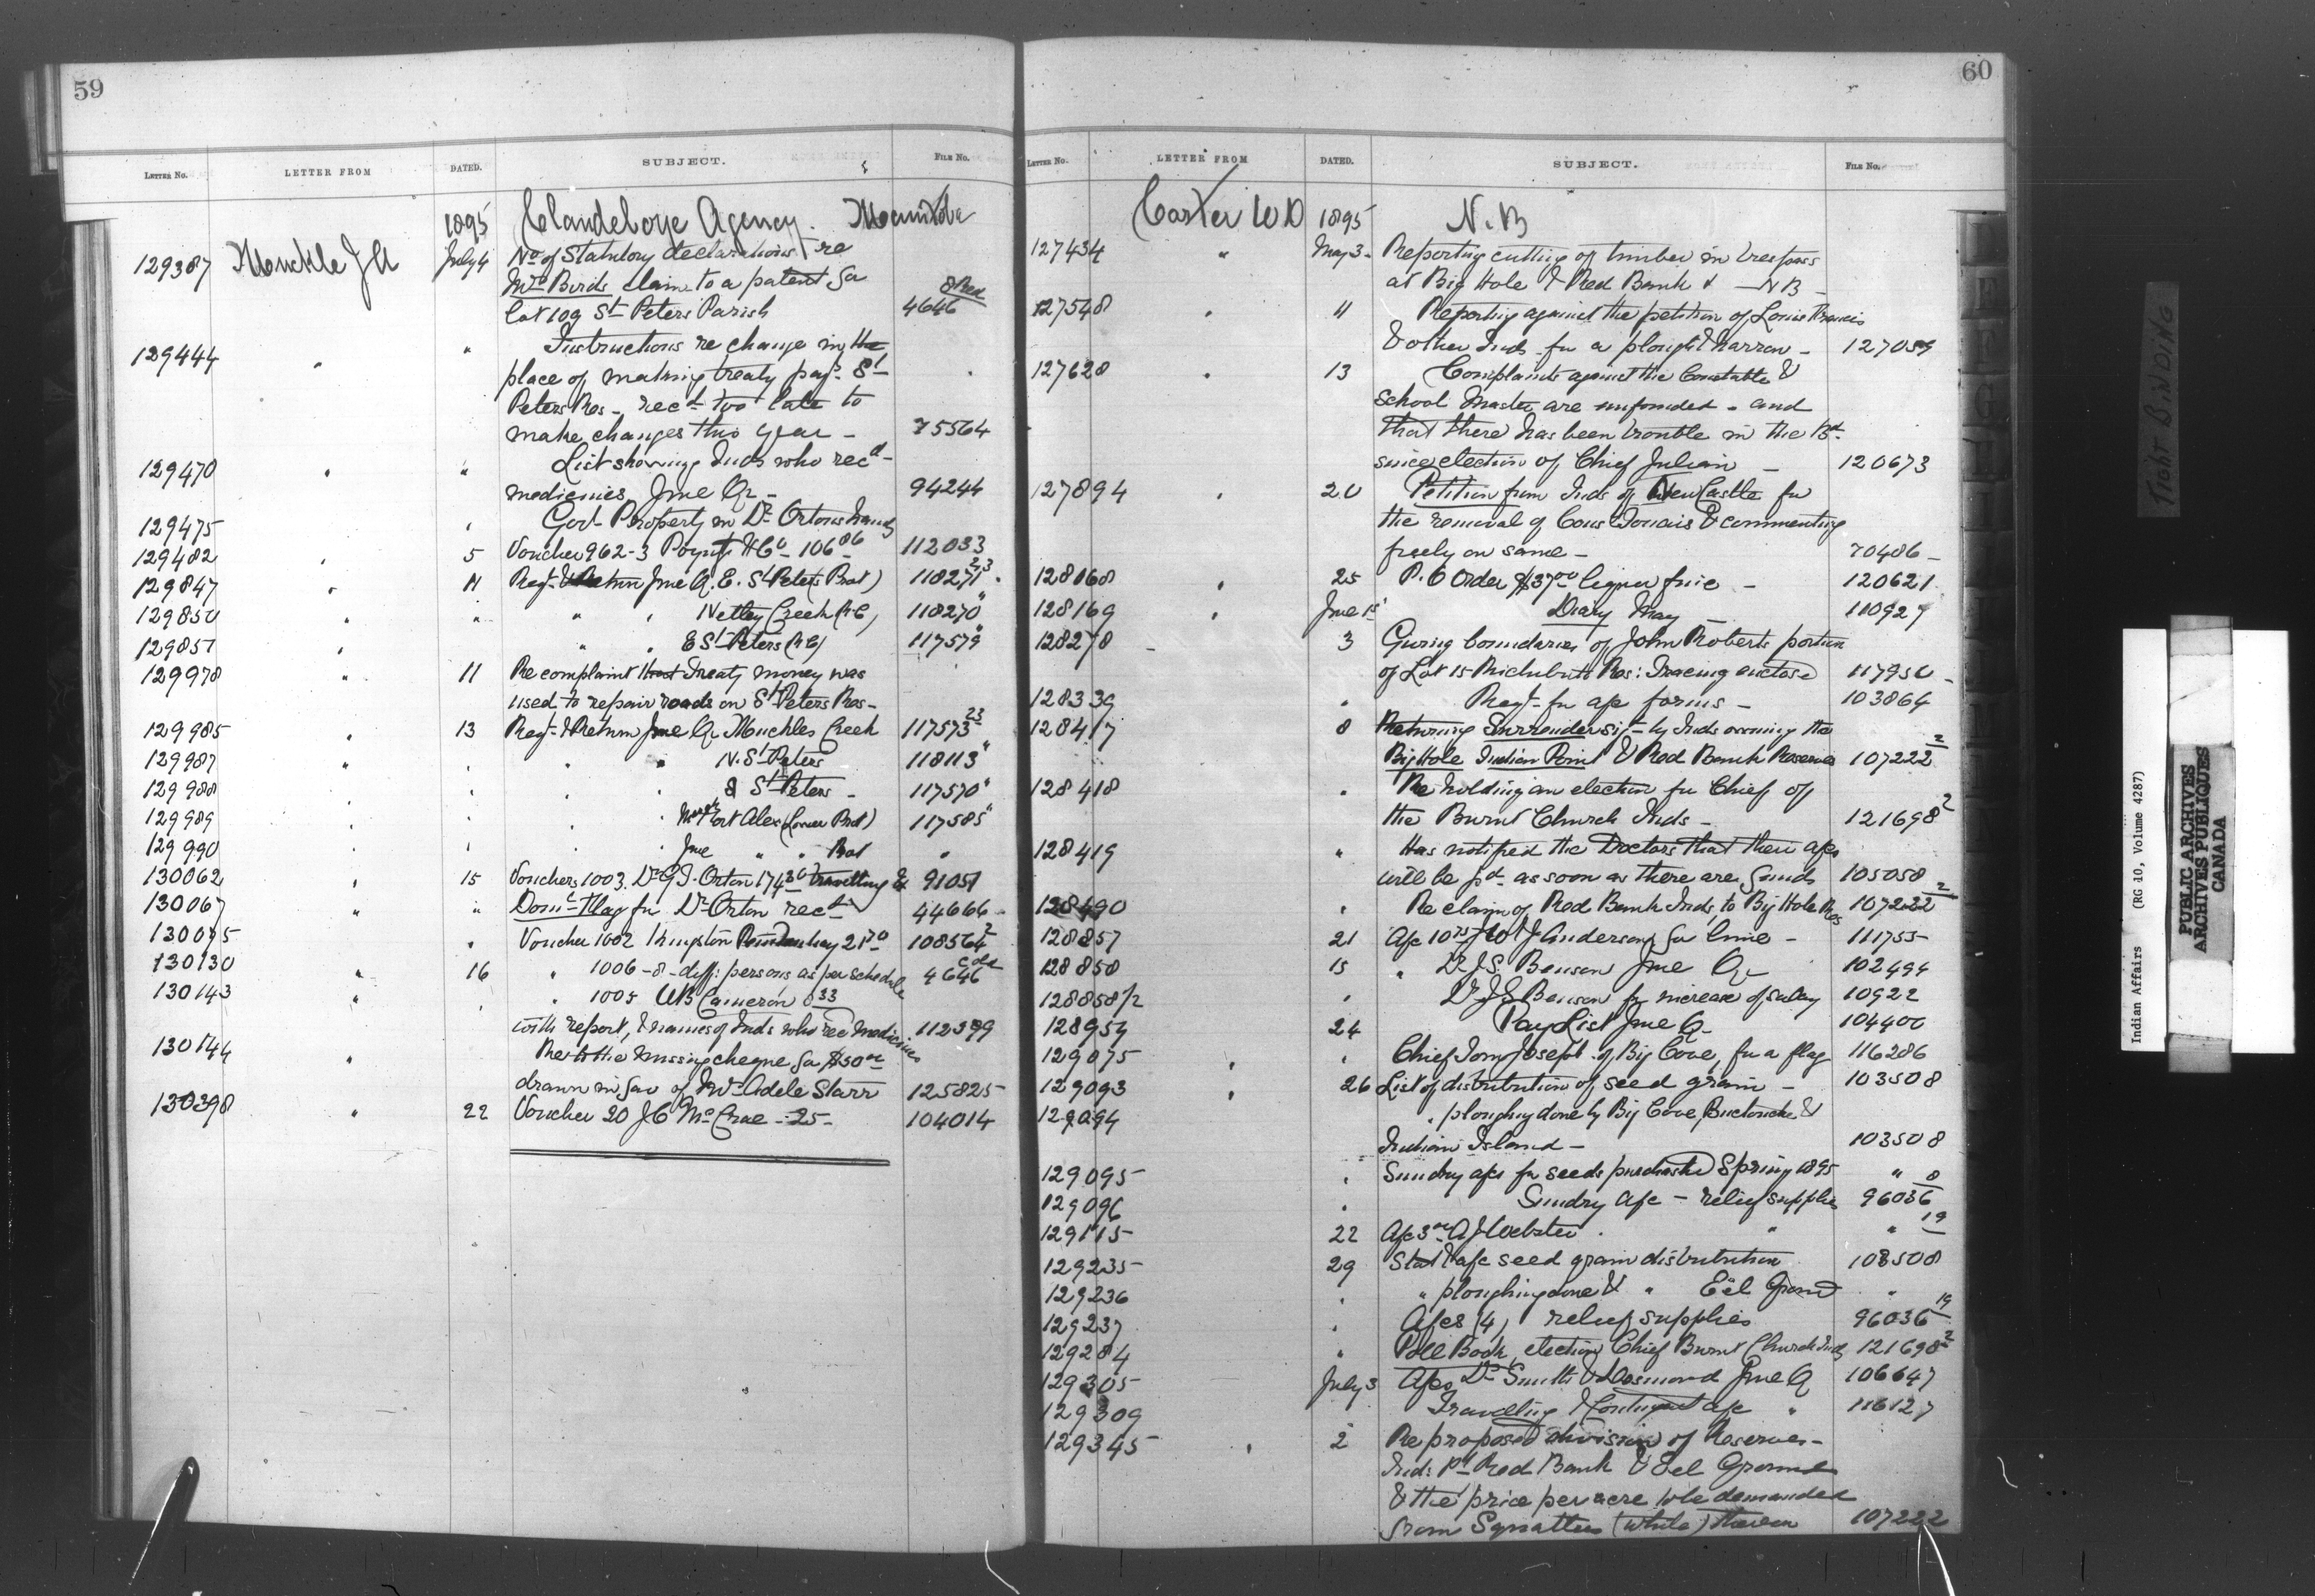 59
LETTER NO. LETTER FROM DATED. SUBJECT. FILE NO.
1895 Clandeboye Agency. Manitoba
129387 Muckle J A July 4 No of Statutory declarations re
Mrs Birds claim to a patent for
lot 109 St Peters Parish 4646 8 Red
129444 " " Instructions re change in the
place of making treaty payts St
Peters Res - recd too late to
make changes this year - 75564
129470 " " List showing Inds who recd
medicines, June Qr - 94244
129475 " Govt Property in Dr Ortons hands
129482 " 5 Voucher 962-3 Poyntz & Co - 106 86 112033
129847 " 11 Regr & Return June Q. E. St Peters Prot) 118271 23
129850 " " " " Netley Creek (RC) 118270 "
129851 " " " E St Peters (RC) 117579 "
129978 " 11 Re complaint that Treaty money was
used to repair roads on St Peters Res -
129985 " 13 Regr & Return June Qr Muckles Creek 117573 23
129987 " " " " N. St Peters 118113 "
129988 " " " S St Peters - 117570 "
129989 " " " Mar Fort Alex (Lower Prot) 117585 "
129990 " " June " " Prot "
130062 " 15 Vouchers 1003. Dr G T. Orton 174 30 travelling Ex 91051
130067 " " Domn Flag for Dr Orton recd 44666
130075 " Voucher 1002 Kingston Penitentiary 21 70 108564 2
130130 " 16 " 1006-8- diff: persons as per schedule 4646
130143 " " " 1005 WB Cameron 33
with report, & names of Inds who rec Medicines 112399
130144 " Re to the missing cheque for $50 00
drawn in fav of Mrs Adele Starr 125825
130398 " 22 Voucher 20 J C McCrae - 25 - 104014
60
LETTER NO. LETTER FROM DATED. SUBJECT. FILE NO.
Carter W D 1895 N. B
127434 " May 3 - Reporting cutting of timber in trespass
at Big Hole & Red Bank & - NB -
127548 " 11 Reporting against the petition of Louis Francis
& other Inds for a plough & harrow - 127059
127628 " 13 Complaints against the Constable &
School Master are unfounded - and
that there has been trouble in the Bd
since election of Chief Julian - 120673
127894 " 20 Petition from Inds of New Castle for
the removal of Cons & commenting
freely on same - 70486 -
128168 " 25 P. O Order $37 00 liquor fine - 120621
128169 " June 1st Diary May - 110927
128278 - 3 Giving boundaries of John Roberts portion
of Lot 15 Richibucto Res: Tracing enclosed 117950 -
128339 " Regt for a/c forms - 103864
128417 8 Returning Surrender sigd by Inds owning the
Big Hole Indian Point & Red Bank Reserves 107222 2
128418 " Re holding an election for Chief of
the Burnt Church Inds - 121698 2
128419 " Has notified the Doctors that their a/cs
will be pd as soon as there are funds 105058
128490 " Re claim of Red Bank Inds to Big Hole Res 107222 2
128857 21 A/c 10 75 W J Anderson for lime - 111755
128858 15 " Dr J.S. Benson June Qr 102494
128858 1/2 " Dr J S Benson for increase of salary 10922
128954 24 Pay List June Q - 104400
129075 " " Chief Tom Joseph of Big Cove, for a flag 116286
129093 " 26 List of distribution of seed grain - 103508
129094 " ploughing done by Big Cove, Buctouche &
Indian Island - 103508
129095 " Sundry a/cs for seeds purchased Spring 1895 "
129096 " Sundry a/c - relief supplies 96036 8
129115 22 A/c 3 00 A J Webster " " 19
129235 29 Statt & a/c seed grain distribution 103508
129236 " " ploughing done & " Eel Ground "
129237 " A/cs (4) relief supplies 96036 19
129284 " Poll Book, election Chief Burnt Church Inds 121698 2
129305 July 3 A/cs Drs Smith & Desmond June Q 106647
129309 Travelling & Contingent a/c " 116127
129345 " 2 Re proposed division of Reserves -
Inds pt Red Bank & Eel Ground
& the price per acre to be demanded
from Squatters (white) thereon 107222
TIGHT BINDING
Indian Affairs (RG 10, Volume 4287)
PUBLIC ARCHIVES
ARCHIVES PUBLIQUES
CANADA